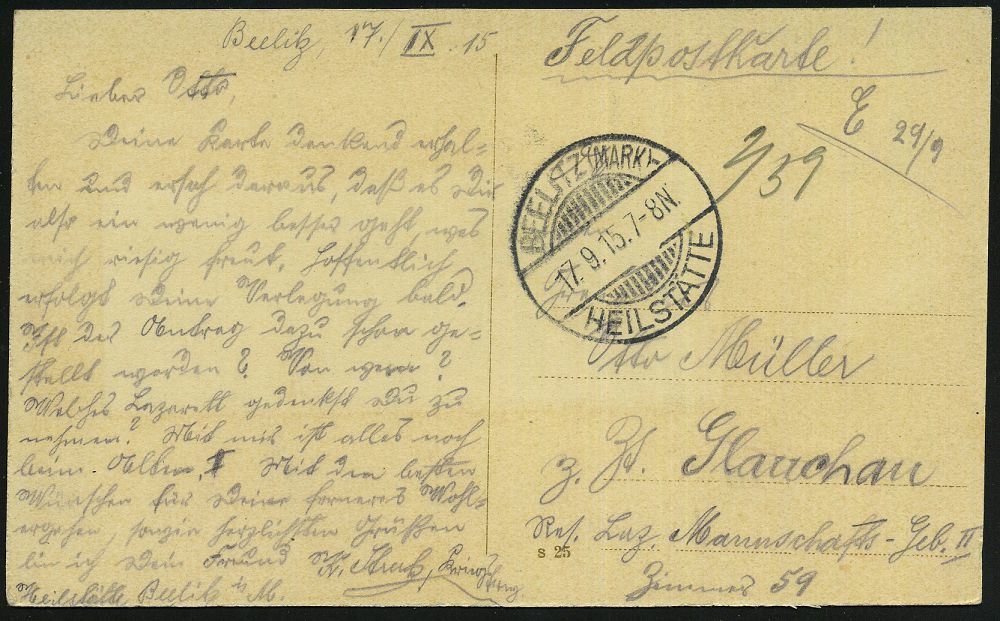 Beelitz, 17./IX.15
Lieber Otto,
Deine Karte dankend erhal-
ten und ersah daraus, daß es Dir
also ein wenig besser geht, was
mich riesig freut. Hoffentlich
erfolgt Deine Verlegung bald.
Ist der Antrag dazu schon ge-
stellt worden? Von wem?
Welches Lazarett gedenkst Du zu
nehmen? Mit mir ist alles noch
beim Alten. Mit den besten
Wünschen für Dein ferneres Wohl-
ergehen sowie herzlichsten Grüßen
bin ich Dein Freund
Heilstätte Beelitz i/M.
Feldpostkarte!
E 29/9
2/59
BEELITZ (MARK)-
17.9.15.7-8N.
HEILSTÄTTE
Otto Müller
z. Zt. Glauchau
Res. Laz. Mannschafts-Geb. II
Zimmer 59
S 25